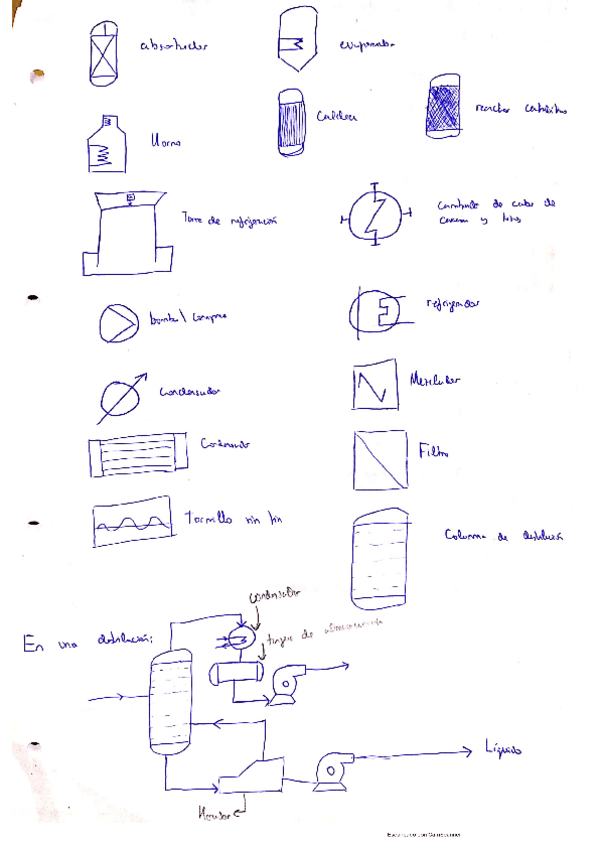 absorbedor
evaporador
Caldera
reactor catalítico
Horno
Torre de refrigeración
Cambiador de calor de
carcasa y tubos
bomba \ compresor
refrigerador
Condensador
Mezclador
Filtro
Tornillo sin fin
Columna de destilación
condensador
En una destilación:
tanque de almacenamiento
Líquido
Escaneado con CamScanner